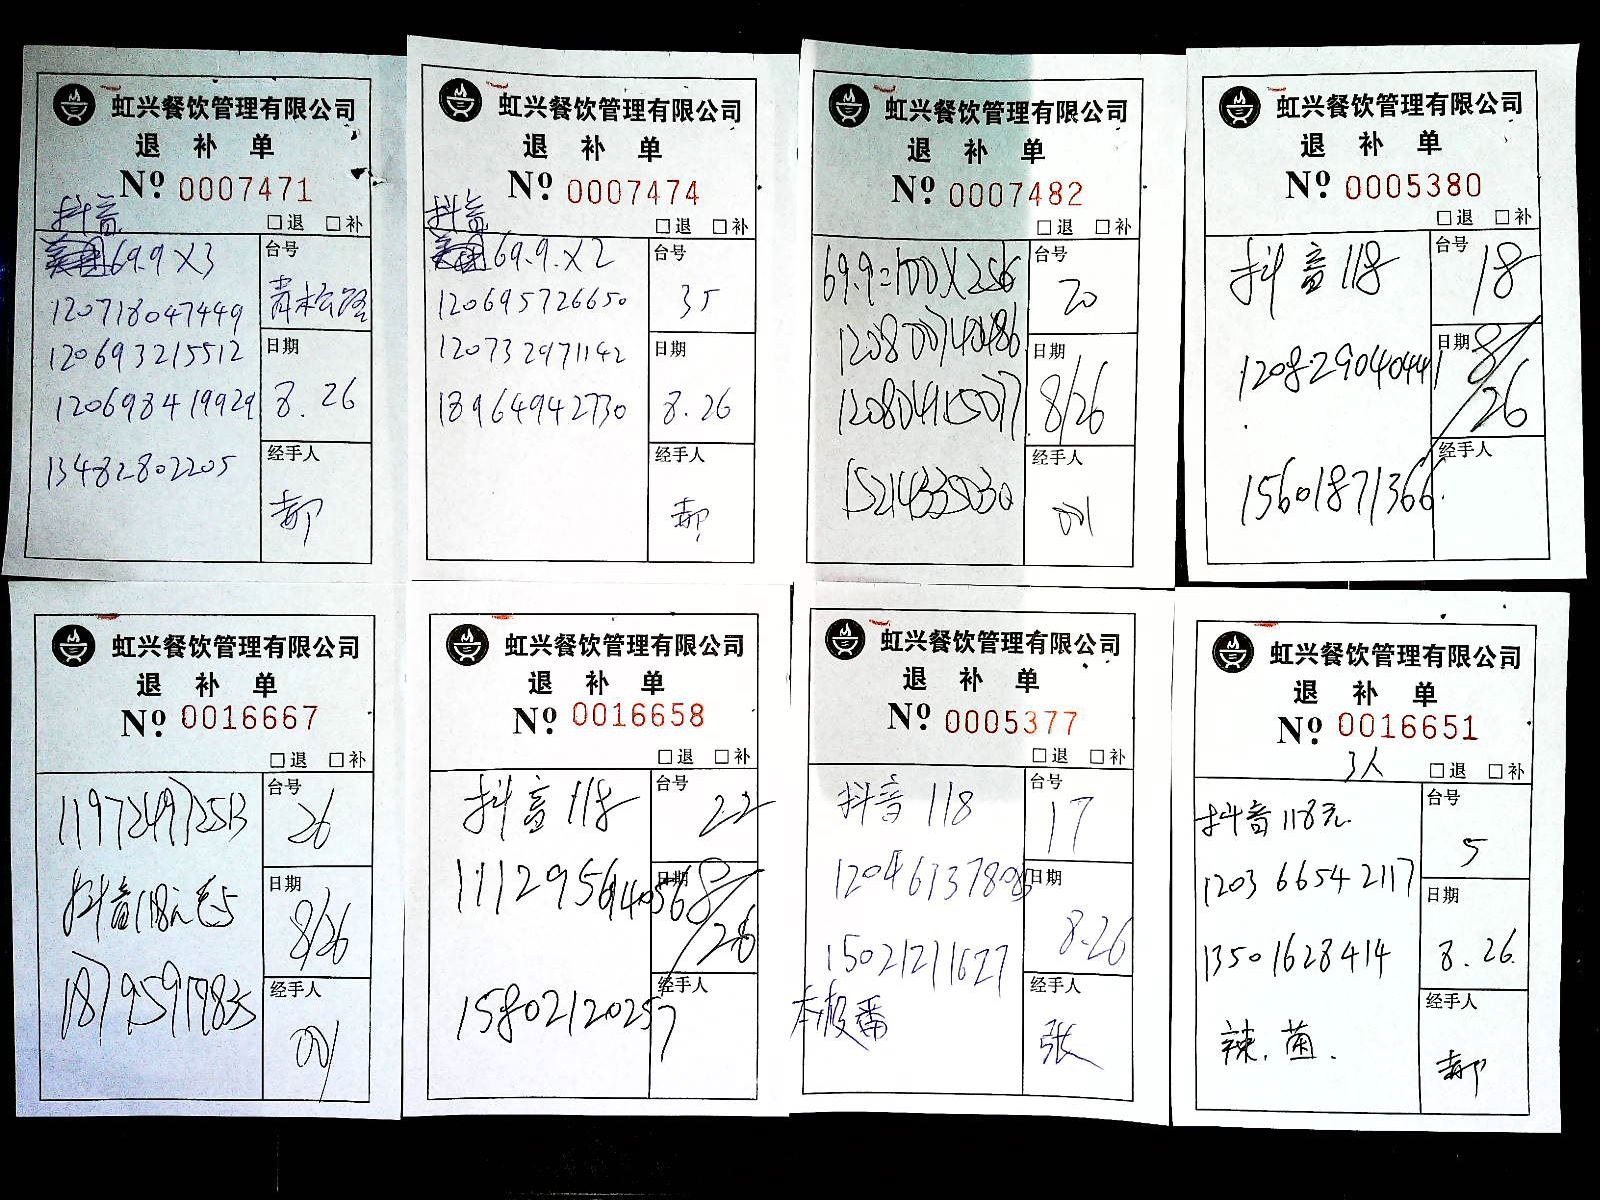 虹兴餐饮管理有限公司
退补单
Nº 0007471
抖音
□退 □补
69.9×3
台号
120718047449
青松路
120693215512
日期
120698419929
8.26
13482802205
经手人
郝
虹兴餐饮管理有限公司
退补单
Nº 0007474
抖音
□退 □补
69.9.×2
台号
120695726650
35
120732971142
日期
18964942730
8.26
经手人
郝
虹兴餐饮管理有限公司
退补单
Nº 0007482
□退 □补
69.9=100×2
台号
20
日期
8/26
经手人
001
虹兴餐饮管理有限公司
退补单
Nº 0005380
□退 □补
抖音118
台号
18
120829040441
日期
8/26
经手人
15601871366
虹兴餐饮管理有限公司
退补单
Nº 0016667
□退 □补
台号
119724972513
26
抖音118元
日期
8/26
18795919835
经手人
001
虹兴餐饮管理有限公司
退补单
Nº 0016658
□退 □补
抖音118
台号
22
日期
8/26
经手人
15802120257
虹兴餐饮管理有限公司
退补单
Nº 0005377
□退 □补
抖音118
台号
17
日期
8.26
15021211627
经手人
张
虹兴餐饮管理有限公司
退补单
Nº 0016651
3人
□退 □补
抖音118元
台号
5
120366542117
日期
13501628414
8.26.
经手人
辣.菌.
郝